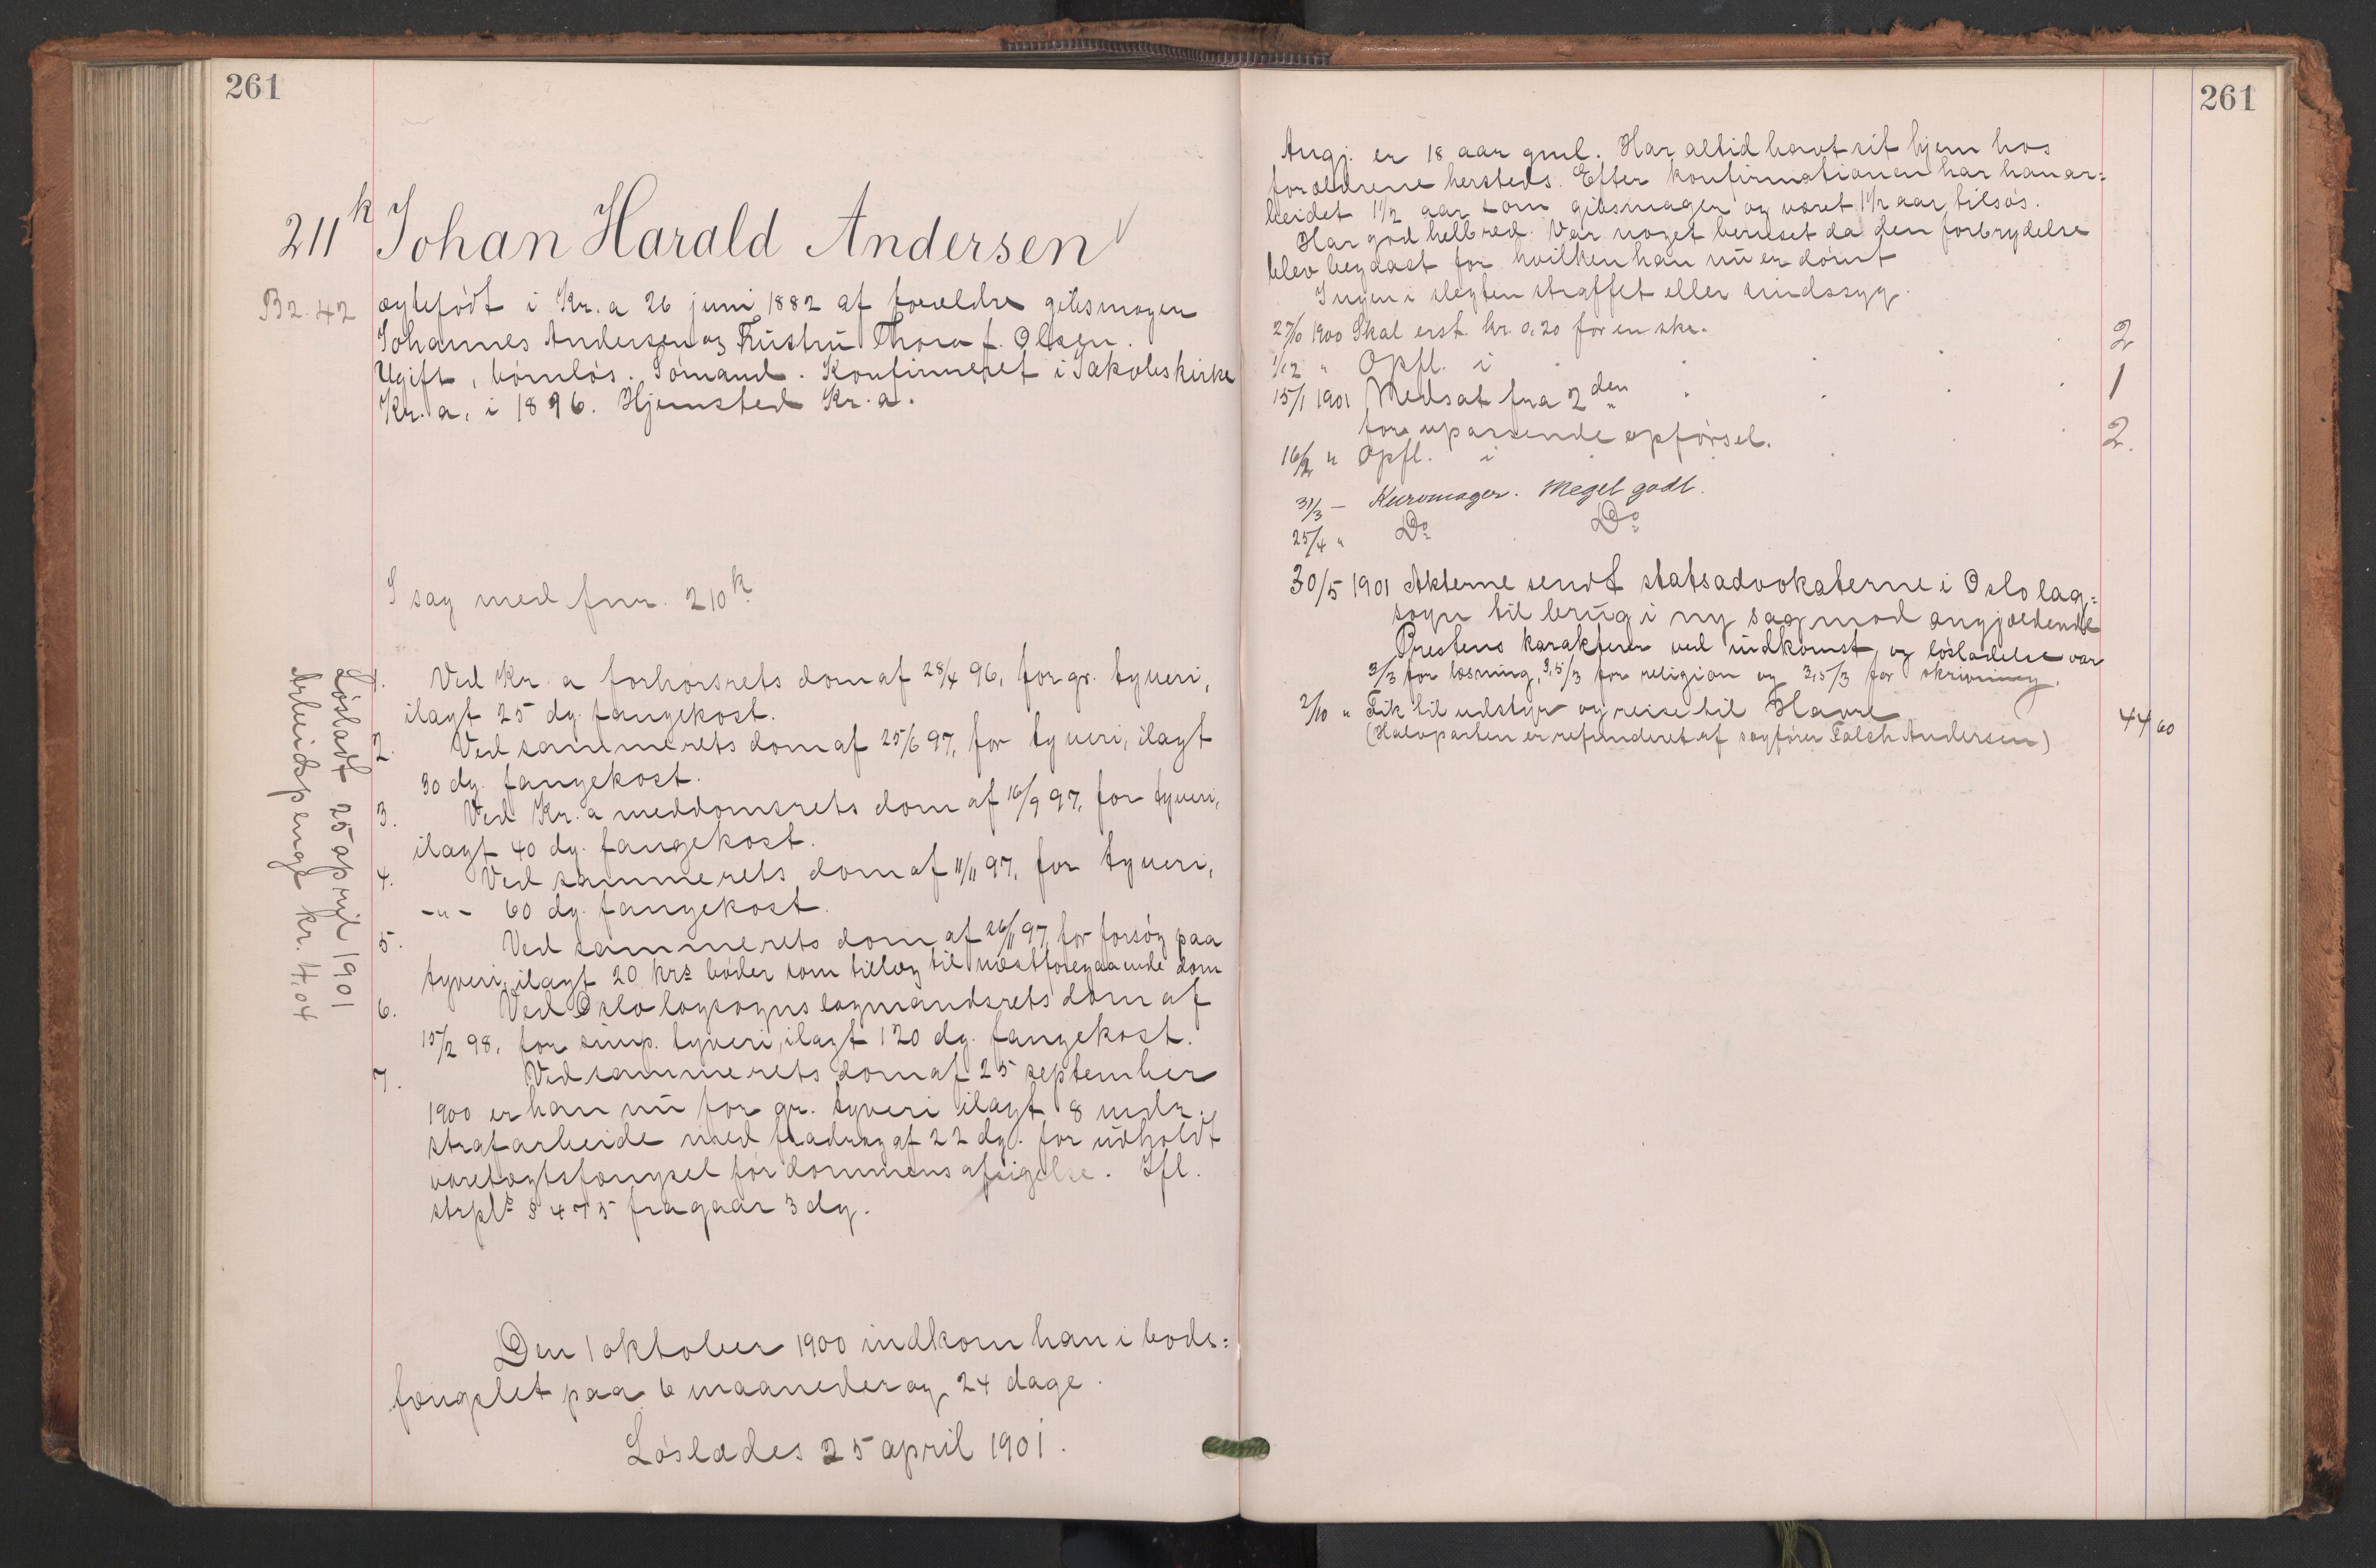 261
211k Johan Harald Andersen
B2.42 ægtefødt i Kr.a 26 juni 1882 af forældre gibsmager
Johannes Andersen og Hustru Thora f. Olsen.
Ugift, børnløs. Sømand. Konfirmeret i Jakobskirke
Kr.a, i 1896. Hjemsted Kr.a.
I sag med fnr. 210k
1. Ved Kr.a forhørsrets dom af 28/4 96, for gr. tyveri,
ilagt 25 dg. fangekost.
2. Ved sammerets dom af 25/6 97, for tyveri, ilagt
30 dg. fangekost.
3. Ved Kr.a meddomsrets dom af 16/9 97, for tyveri,
ilagt 40 dg. fangekost.
4. Ved sammerets dom af 11/11 97, for tyveri,
-"- 60 dg. fangekost.
5. Ved sammerets dom af 26/11 97, for forsøg paa
tyveri, ilagt 20 krs bøder som tillæg til næstforegaaende dom
6. Ved Oslo lagsogns lagmandsrets dom af
15/2 98, for simp. tyveri, ilagt 120 dg. fangekost.
7. Ved sammerets dom af 25 september
1900 er han nu for gr. tyveri ilagt 8 mdr.
strafarbeide med fradrag af 22 dg. for udholdt
varetægtsfængsel før dommens afsigelse. Ifl.
strpl § 475 fragaar 3 dg.
Løsladt 25 april 1901
Arbeidspenge kr. 4,04
Den 1 oktober 1900 indkom han i bods=
fængslet paa 6 maaneder og 24 dage.
Løslades 25 april 1901.
261
Angj. er 18 aar gml. Har altid havt sit hjem hos
forældrene hersteds. Efter konfirmationen har han ar=
beidet 1 1/2 aar som gibsmager og været 1 1/2 aar tilsøs.
Har god helbred. Var noget beruset da den forbrydelse
blev begaaet for hvilken han nu er dømt
Ingen i slegten straffet eller sindssyg.
27/10 1900 Skal erst. kr. 0,20 for en ske.
1/12 " Opfl. i 2
15/1 1901 Nedsat fra 2den 1
for upassende opførsel.
16/2 " Opfl. i 2.
31/3 - Kurvmager. Meget godt.
25/4 " Do Do
30/5 1901 Akterne sendt statsadvokaterne i Oslo lag=
sogn til brug i ny sag mod angjældende
Prestens karakterer ved indkomst og løsladelse var
3/3 for læsning, 3,5/3 for religion og 3,5/3 for skrivning.
2/10 " Fik til udstyr og reise til Havre 44 60
(Halvparten er refunderet af sagfører Falch Andersen)